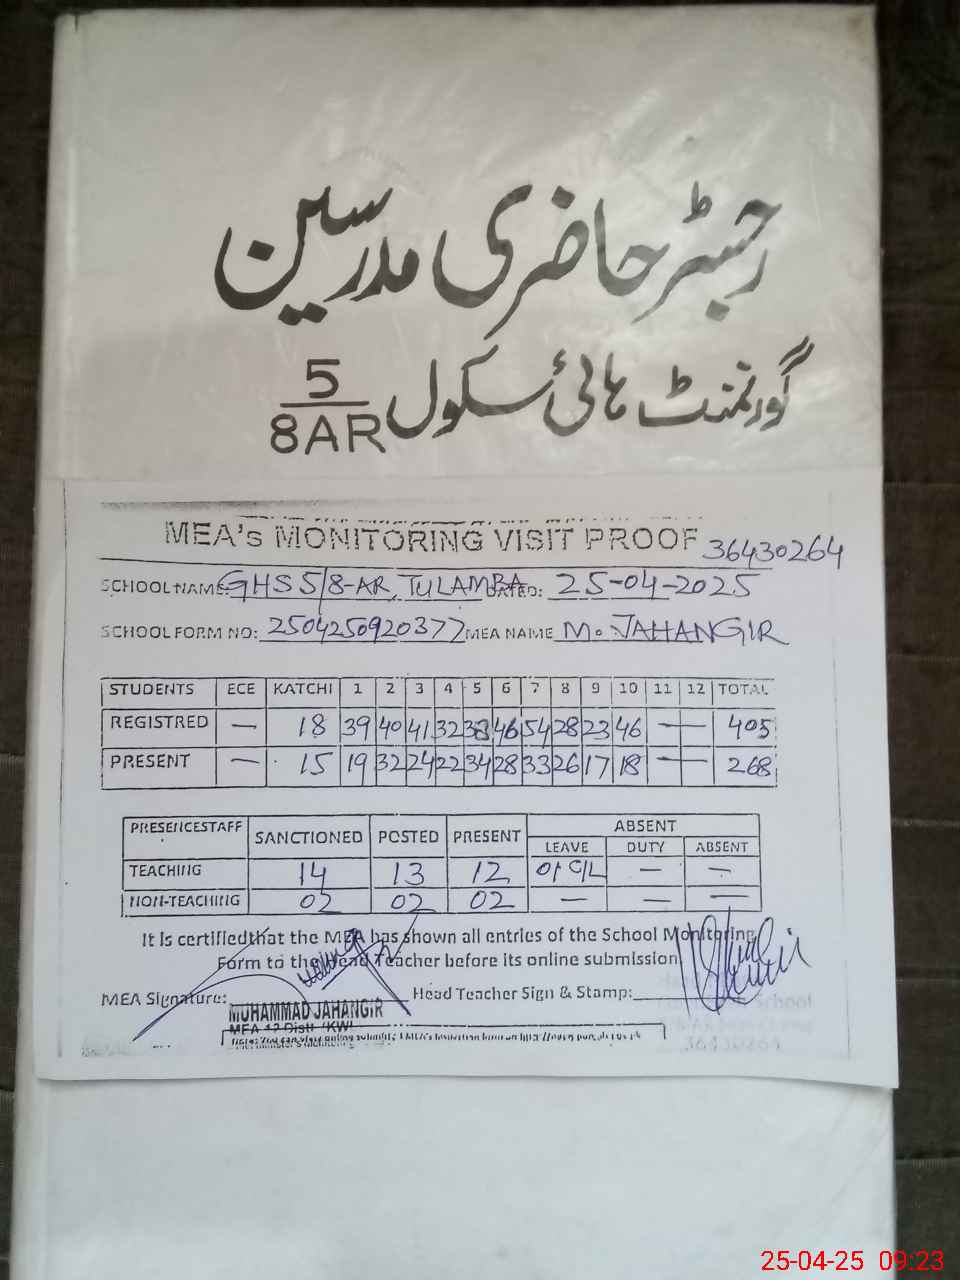 رجسٹر حاضری مدرسین
گورنمنٹ ہائی سکول 5/8AR
MEA's MONITORING VISIT PROOF 36430264
SCHOOL NAME: GHS 5/8-AR, TULAMBA DATED: 25-04-2025
SCHOOL FORM NO: 2504250920377 MEA NAME M. JAHANGIR
STUDENTS ECE KATCHI 1 2 3 4 5 6 7 8 9 10 11 12 TOTAL
REGISTRED — 18 39 40 41 32 38 46 54 28 23 46 — — 405
PRESENT — 15 19 32 24 22 34 28 33 26 17 18 — — 268
PRESENCESTAFF SANCTIONED POSTED PRESENT ABSENT
LEAVE DUTY ABSENT
TEACHING 14 13 12 01 C/L — —
NON-TEACHING 02 02 02 — — —
It is certified that the MEA has shown all entries of the School Monitoring
Form to the Head Teacher before its online submission
MEA Signature: Head Teacher Sign & Stamp:
MUHAMMAD JAHANGIR
MEA 12 Distt (KWL
School
36430264
25-04-25 09:23